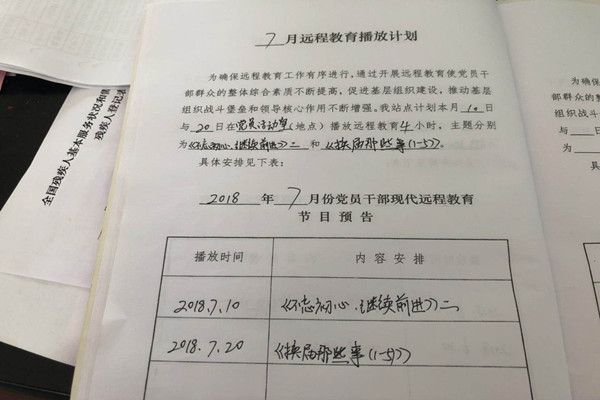 7月远程教育播放计划
为确保远程教育工作有序进行，通过开展远程教育使党员干
部群众的整体综合素质不断提高，促进基层组织建设，推动基层
组织战斗堡垒和领导核心作用不断增强。我站点计划本月10日
与20日在党员活动室（地点）播放远程教育4小时，主题分别
为《不忘初心、继续前进》二 和《换届那些事(1-5)》。
具体安排见下表：
2018 年 7 月份党员干部现代远程教育
节目预告
播放时间 内容安排
2018.7.10 《不忘初心、继续前进》二
2018.7.20 《换届那些事(1-5)》
全国残疾人基本服务状况和
残疾人登记
为确
部群众
组织战
与 日
为
具体